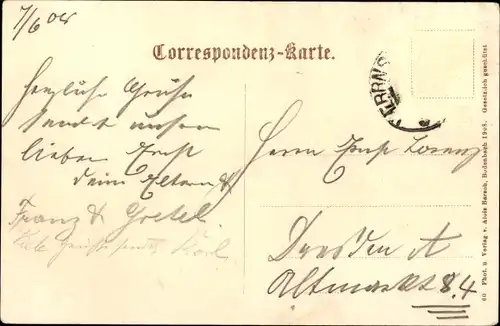 7/6 08
Correspondenz-Karte.
Herzliche Grüße
sendet unserm
lieben Ernst
deine Eltern &
Franz & Gretel.
Karl
Herrn Ernst Lorenz
Dresden A
Altmarkt 8.4
80 Phot. u. Verlag v. Alois Bersch, Bodenbach 1908. Gesetzlich geschützt